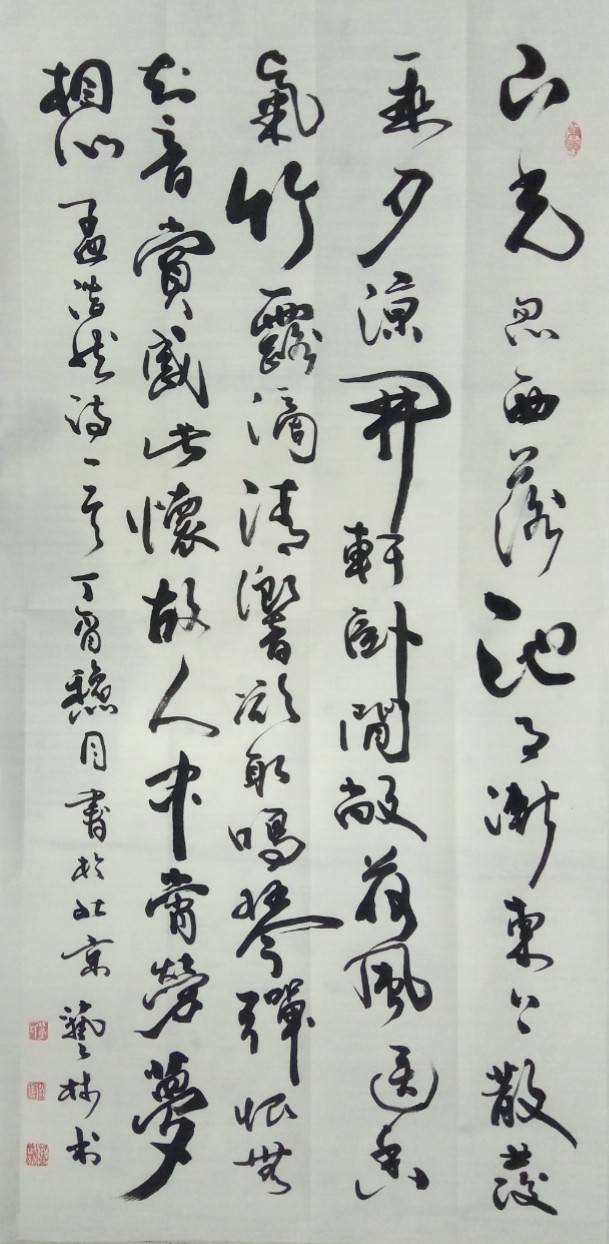 山光忽西落池月漸東上散發
乘夕涼開軒卧閒敞荷風送香
氣竹露滴清響欲取鳴琴彈恨無
知音賞感此懷故人中宵勞夢
想 孟浩然詩一首 丁酉穐月書於北京 藝林